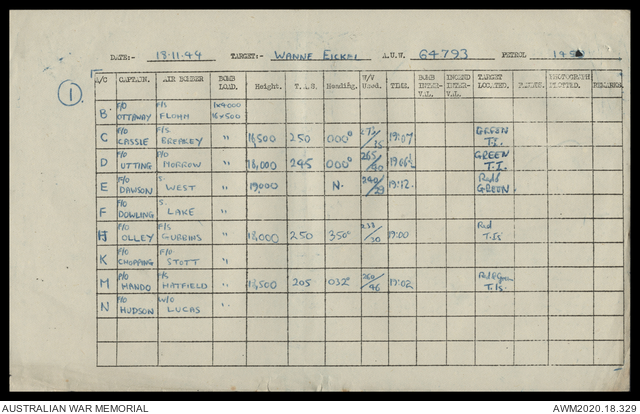 DATE:- 18.11.44 TARGET:- WANNE EICKEL A.U.W. 64793 PETROL
1
A/C CAPTAIN. AIR BOMBER BOMB LOAD. Height. T.A.S. Heading. W/V Used. TIME. BOMB INTER-VAL. INCEND INTER-VAL. TARGET LOCATED. PHOTOGRAPH PLOTTED. REMARKS
B F/O OTTAWAY F/S FLOHM 1x4000 16x500
C F/O CASSLE F/S BREAKEY " 18,500 250 000° 19.07 GREEN T.I.
D F/O UTTING MORROW " 18,000 245 000° 265/40 GREEN T.I.
E F/O DAWSON S. WEST " 19,000 N. 240/29 19.12 Red & GREEN.
F F/O DOWLING S. LAKE "
H F/O OLLEY F/S GUBBINS " 18,000 250 350° 19.00 Red T.Is
K F/O CHOPPING F/O STOTT "
M F/O MANDO HATFIELD " 18,500 205 032° 19.02 T.Is.
N F/O HUDSON W/O LUCAS "
AUSTRALIAN WAR MEMORIAL AWM2020.18.329